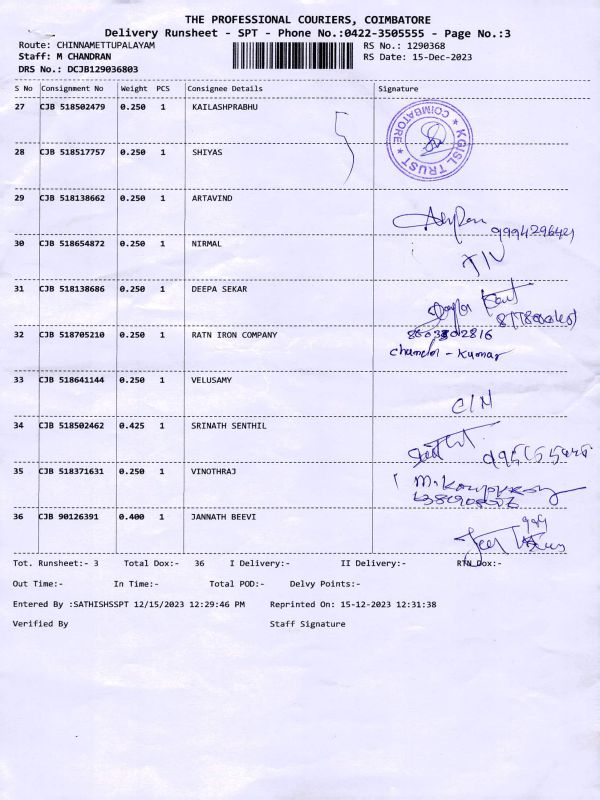 THE PROFESSIONAL COURIERS, COIMBATORE
Delivery Runsheet - SPT - Phone No.:0422-3505555 - Page No.:3
Route: CHINNAMETTUPALAYAM RS No.: 1290368
Staff: M CHANDRAN RS Date: 15-Dec-2023
DRS No.: DCJB129036803
S No Consignment No Weight PCS Consignee Details Signature
27 CJB 518502479 0.250 1 KAILASHPRABHU
KGISL TRUST * COIMBATORE *
28 CJB 518517757 0.250 1 SHIYAS
29 CJB 518138662 0.250 1 ARTAVIND
9994296421
30 CJB 518654872 0.250 1 NIRMAL
31 CJB 518138686 0.250 1 DEEPA SEKAR
32 CJB 518705210 0.250 1 RATN IRON COMPANY
Kumar
33 CJB 518641144 0.250 1 VELUSAMY
C/N
34 CJB 518502462 0.425 1 SRINATH SENTHIL
35 CJB 518371631 0.250 1 VINOTHRAJ
36 CJB 90126391 0.400 1 JANNATH BEEVI
Tot. Runsheet:- 3 Total Dox:- 36 I Delivery:- II Delivery:- RTN Dox:-
Out Time:- In Time:- Total POD:- Delvy Points:-
Entered By :SATHISHSSPT 12/15/2023 12:29:46 PM Reprinted On: 15-12-2023 12:31:38
Verified By Staff Signature